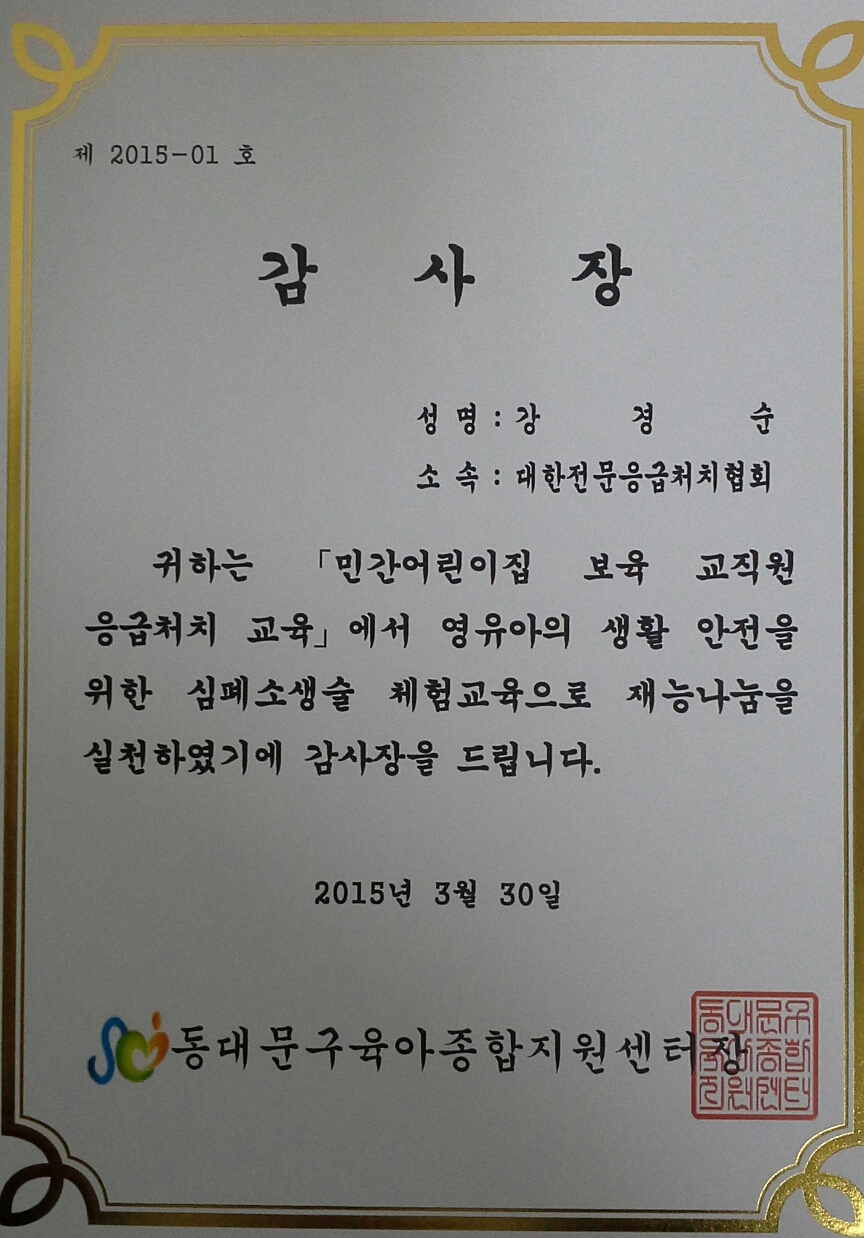 제 2015-01 호
감 사 장
성 명 : 강 경 순
소 속 : 대한전문응급처치협회
귀하는 「민간어린이집 보육 교직원
응급처치 교육」에서 영유아의 생활 안전을
위한 심폐소생술 체험교육으로 재능나눔을
실천하였기에 감사장을 드립니다.
2015년 3월 30일
동대문구육아종합지원센터장